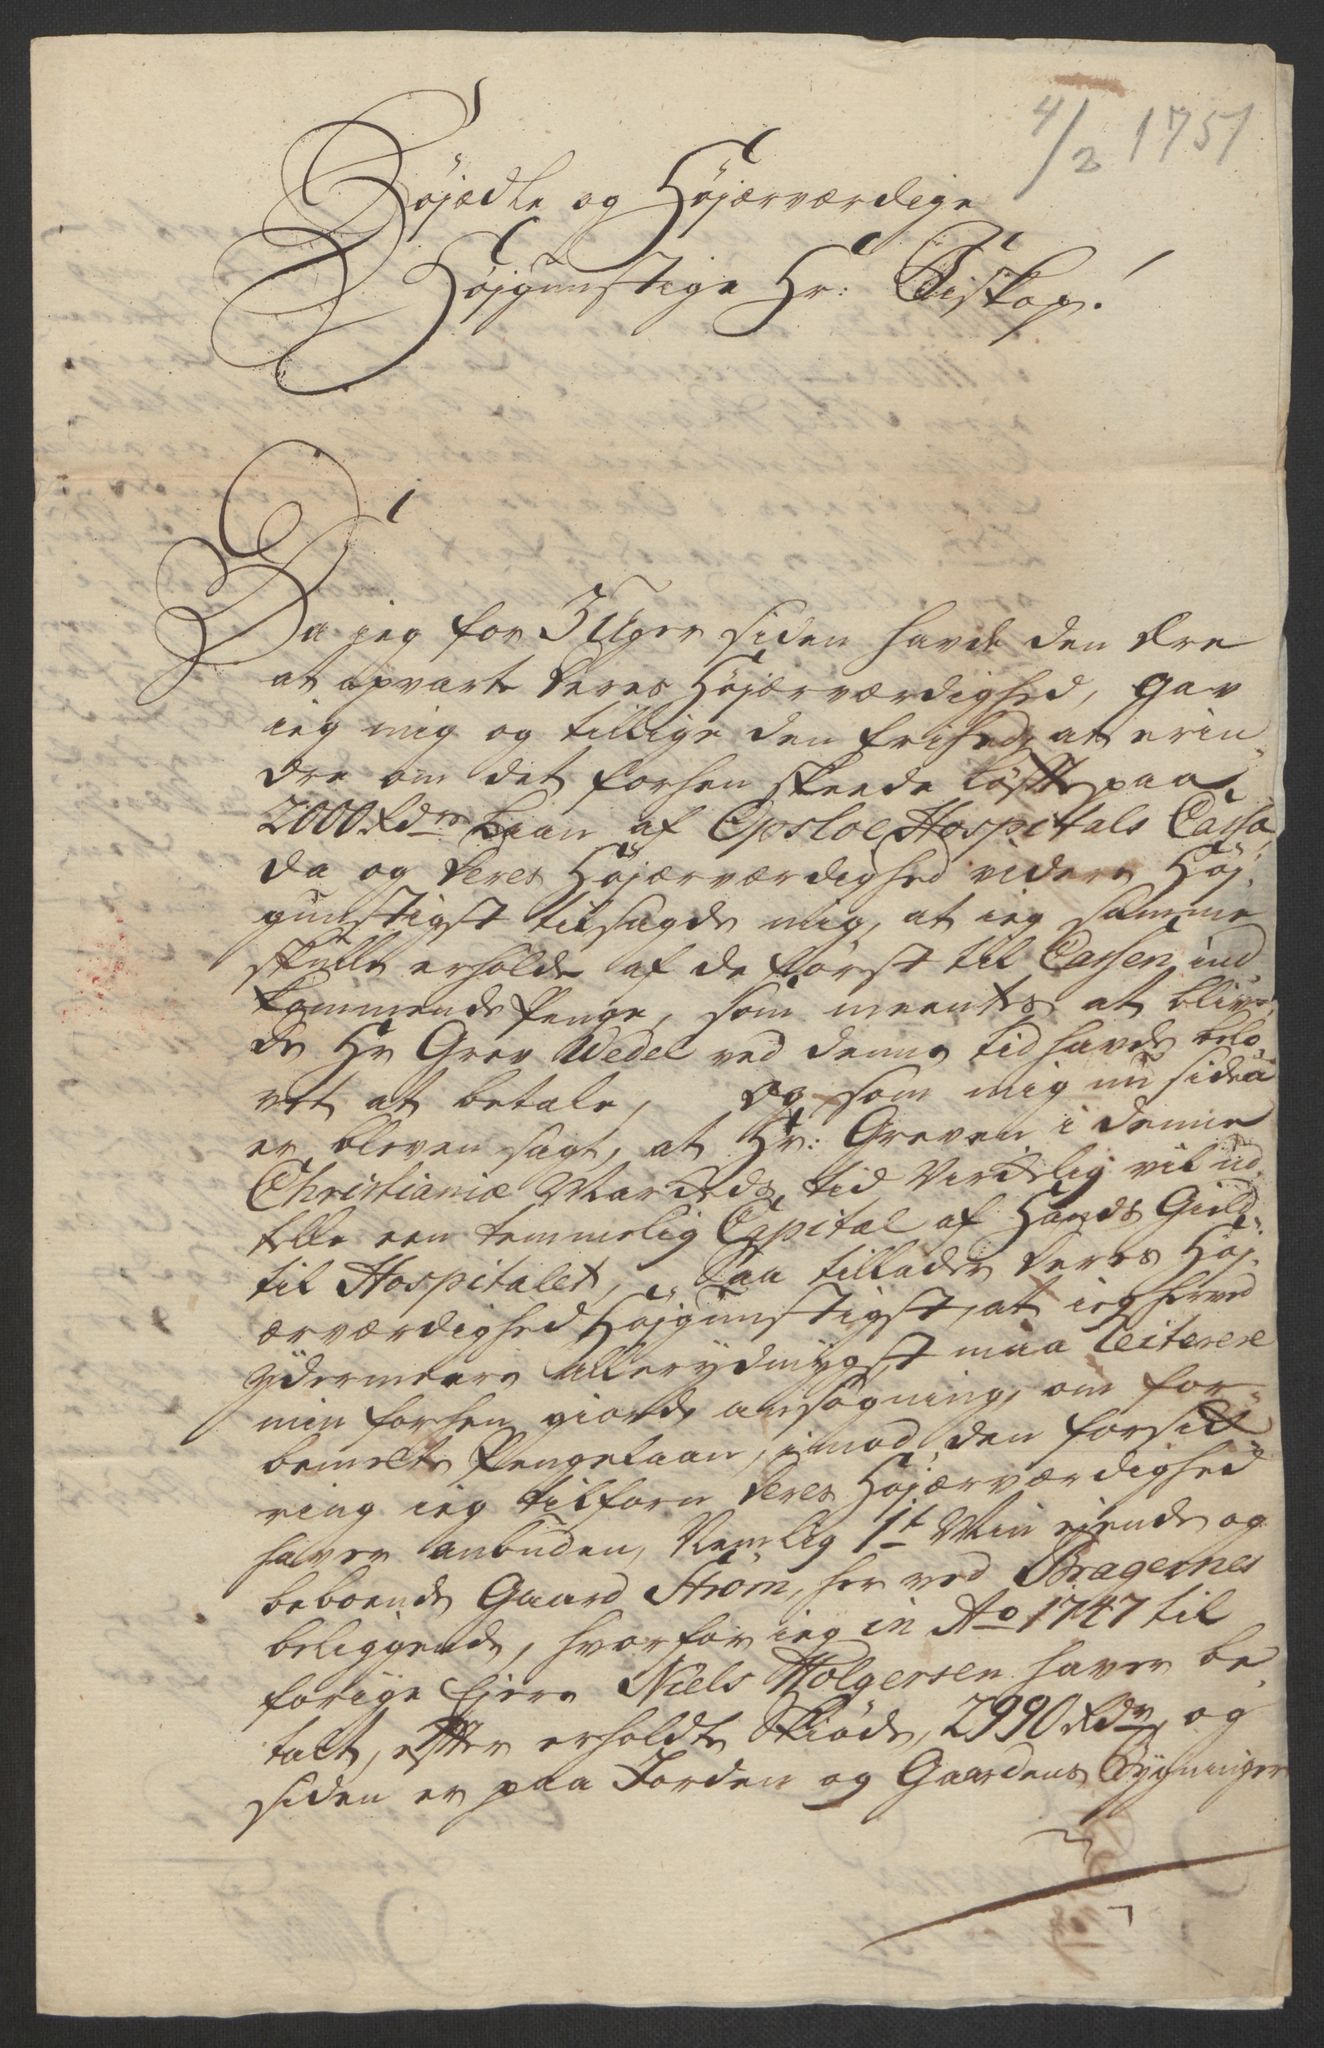 4/2 1751
Højædle og Højærværdige
Højgunstige Hr: Biskop.!
Da jeg for 3 Uger siden havde den Ære
at opvarte Deres Højærværdighed, gav
ieg mig og tillige den frihed, at erin-
dre om det forhen skeede løfte paa
2000 Rdrs Laan af Opsloe Hospitals Cassa,
da og Deres Højærværdighed videre Høj-
gunstigst tilsagde mig, at ieg samme
skulle erholde af de først til Cassen ind-
kommende Penge, som meentes at blive
de Hr Grev Wedel ved denne tid havde belo-
vet at betale, og som mig nu siden
er bleven sagt, at Hr: Greven i denne
Christianiæ Markeds tid Virkelig vil ud-
telle een temmelig Capital af Hands Gield
til Hospitalet, Saa tillader Deres Høj-
ærværdighed Højgunstigst, at ieg herved
ydermeere allerydmygst maa reiterere
min forhen giorde ansøgning, om for-
bemelte Pengelaan, imod den forsik-
ring ieg tilforn Deres Højærværdighed
haver anbuden, Nemlig 1t Min eiende og
beboende Gaard Strøm, her ved Bragernes
beliggende, hvorfor ieg in Ao 1747 til
forige Ejere Niels Holgersen haver be-
talt, efter erholdte Skiøde, 2990 Rdr, og
siden er paa Jorden og Gaardens Bygninger